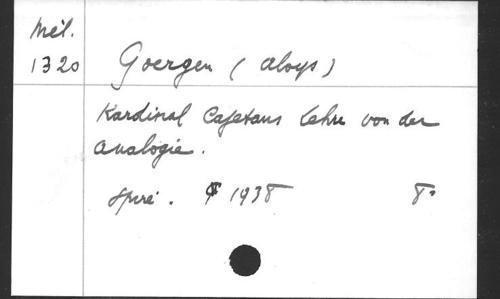 Mél.
1320
Goergen (Aloys)
Kardinal Cajetans Lehre von der
Analogie.
Spire. 1938 8°